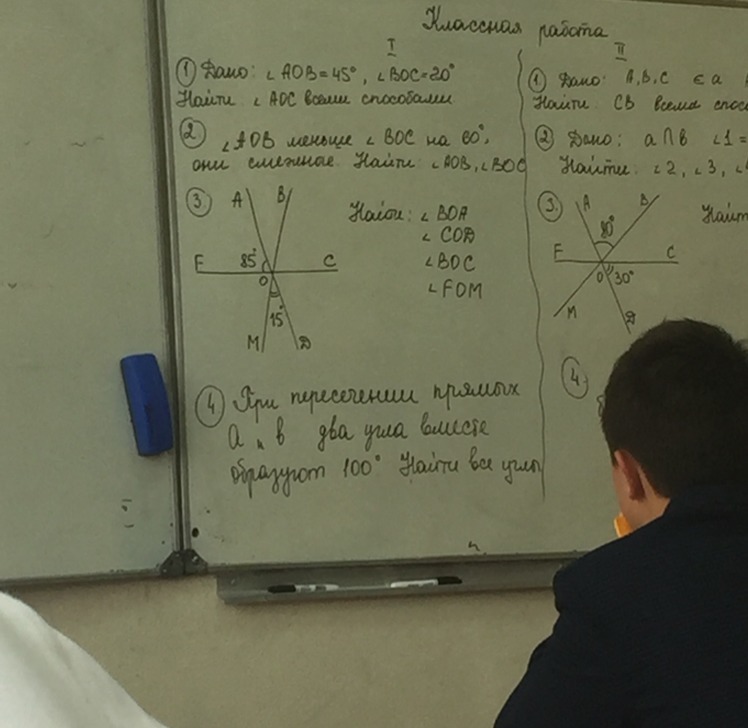 Классная работа
I
① Дано: ∠ AOB=45°, ∠ BOC=20°
Найти ∠ AOC всеми способами
② ∠AOB меньше ∠ BOC на 60°,
они смежные. Найти: ∠AOB, ∠BOC
③ A B
F 85° C
O
15°
M D
Найти: ∠ BOA
∠ COD
∠ BOC
∠ FOM
④ При пересечении прямых
a и b два угла вместе
образуют 100° Найти все углы
II
① Дано: A, B, C ∈ a
Найти: CB всеми
② Дано: a ∩ b ∠1 =
Найти: ∠2, ∠3,
③ A B
80°
F C
O 30°
M D
④